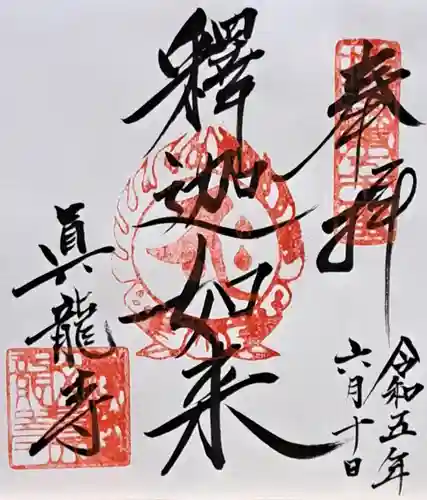 奉拝
令和五年
六月十日
釋迦如来
眞龍寺